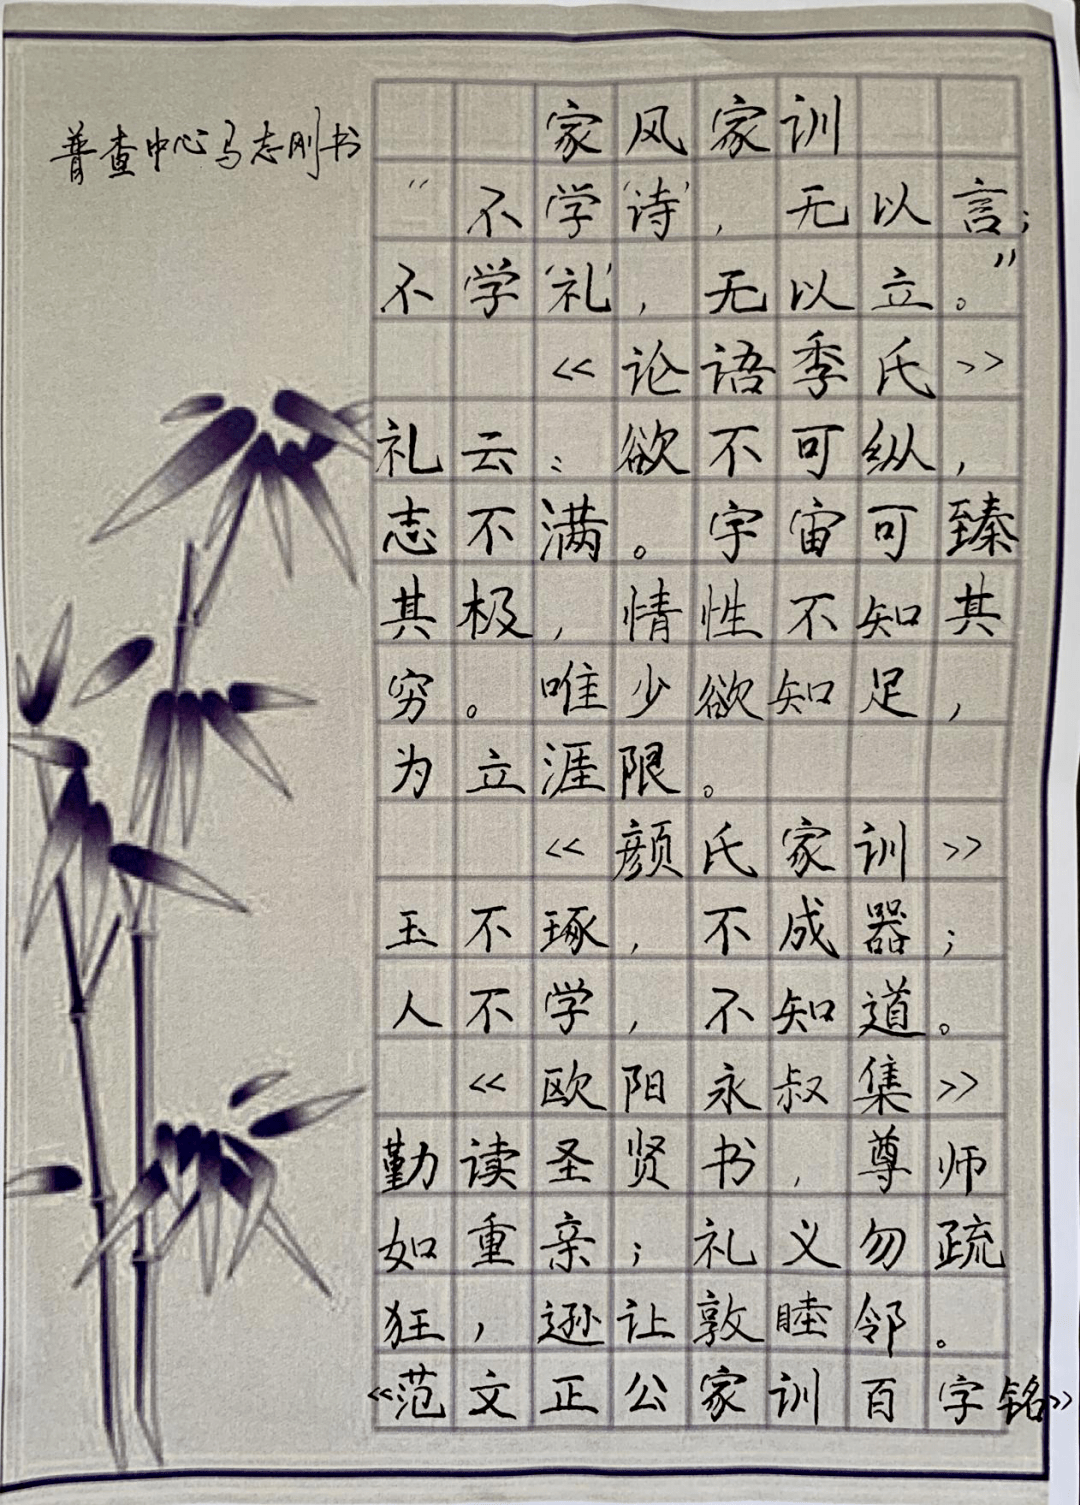 普查中心马志刚书
家风家训
“不学‘诗’，无以言；
不学‘礼’，无以立。”
《论语季氏》
礼云：欲不可纵，
志不满。宇宙可臻
其极，情性不知其
穷。唯少欲知足，
为立涯限。
《颜氏家训》
玉不琢，不成器；
人不学，不知道。
《欧阳永叔集》
勤读圣贤书，尊师
如重亲；礼义勿疏
狂，逊让敦睦邻。
《范文正公家训百字铭》